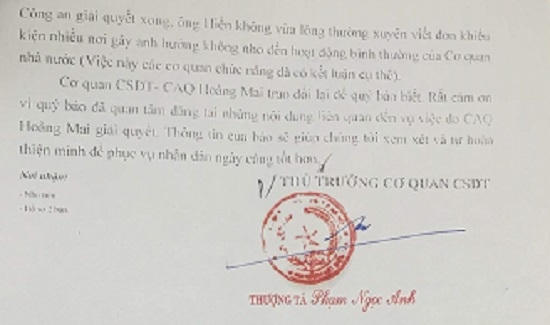 Công an giải quyết xong, ông Hiền không vừa lòng thường xuyên viết đơn khiếu
kiện nhiều nơi gây ảnh hưởng không nhỏ đến hoạt động bình thường của Cơ quan
nhà nước (Việc này các cơ quan chức năng đã có kết luận cụ thể).
Cơ quan CSĐT- CAQ Hoàng Mai trao đổi lại để quý báo biết. Rất cảm ơn
vì quý báo đã quan tâm đăng tải những nội dung liên quan đến vụ việc do CAQ
Hoàng Mai giải quyết. Thông tin của báo sẽ giúp chúng tôi xem xét và tự hoàn
thiện mình để phục vụ nhân dân ngày càng tốt hơn./
Nơi nhận:
- Như trên
THỦ TRƯỞNG CƠ QUAN CSĐT
THƯỢNG TÁ Phạm Ngọc Anh